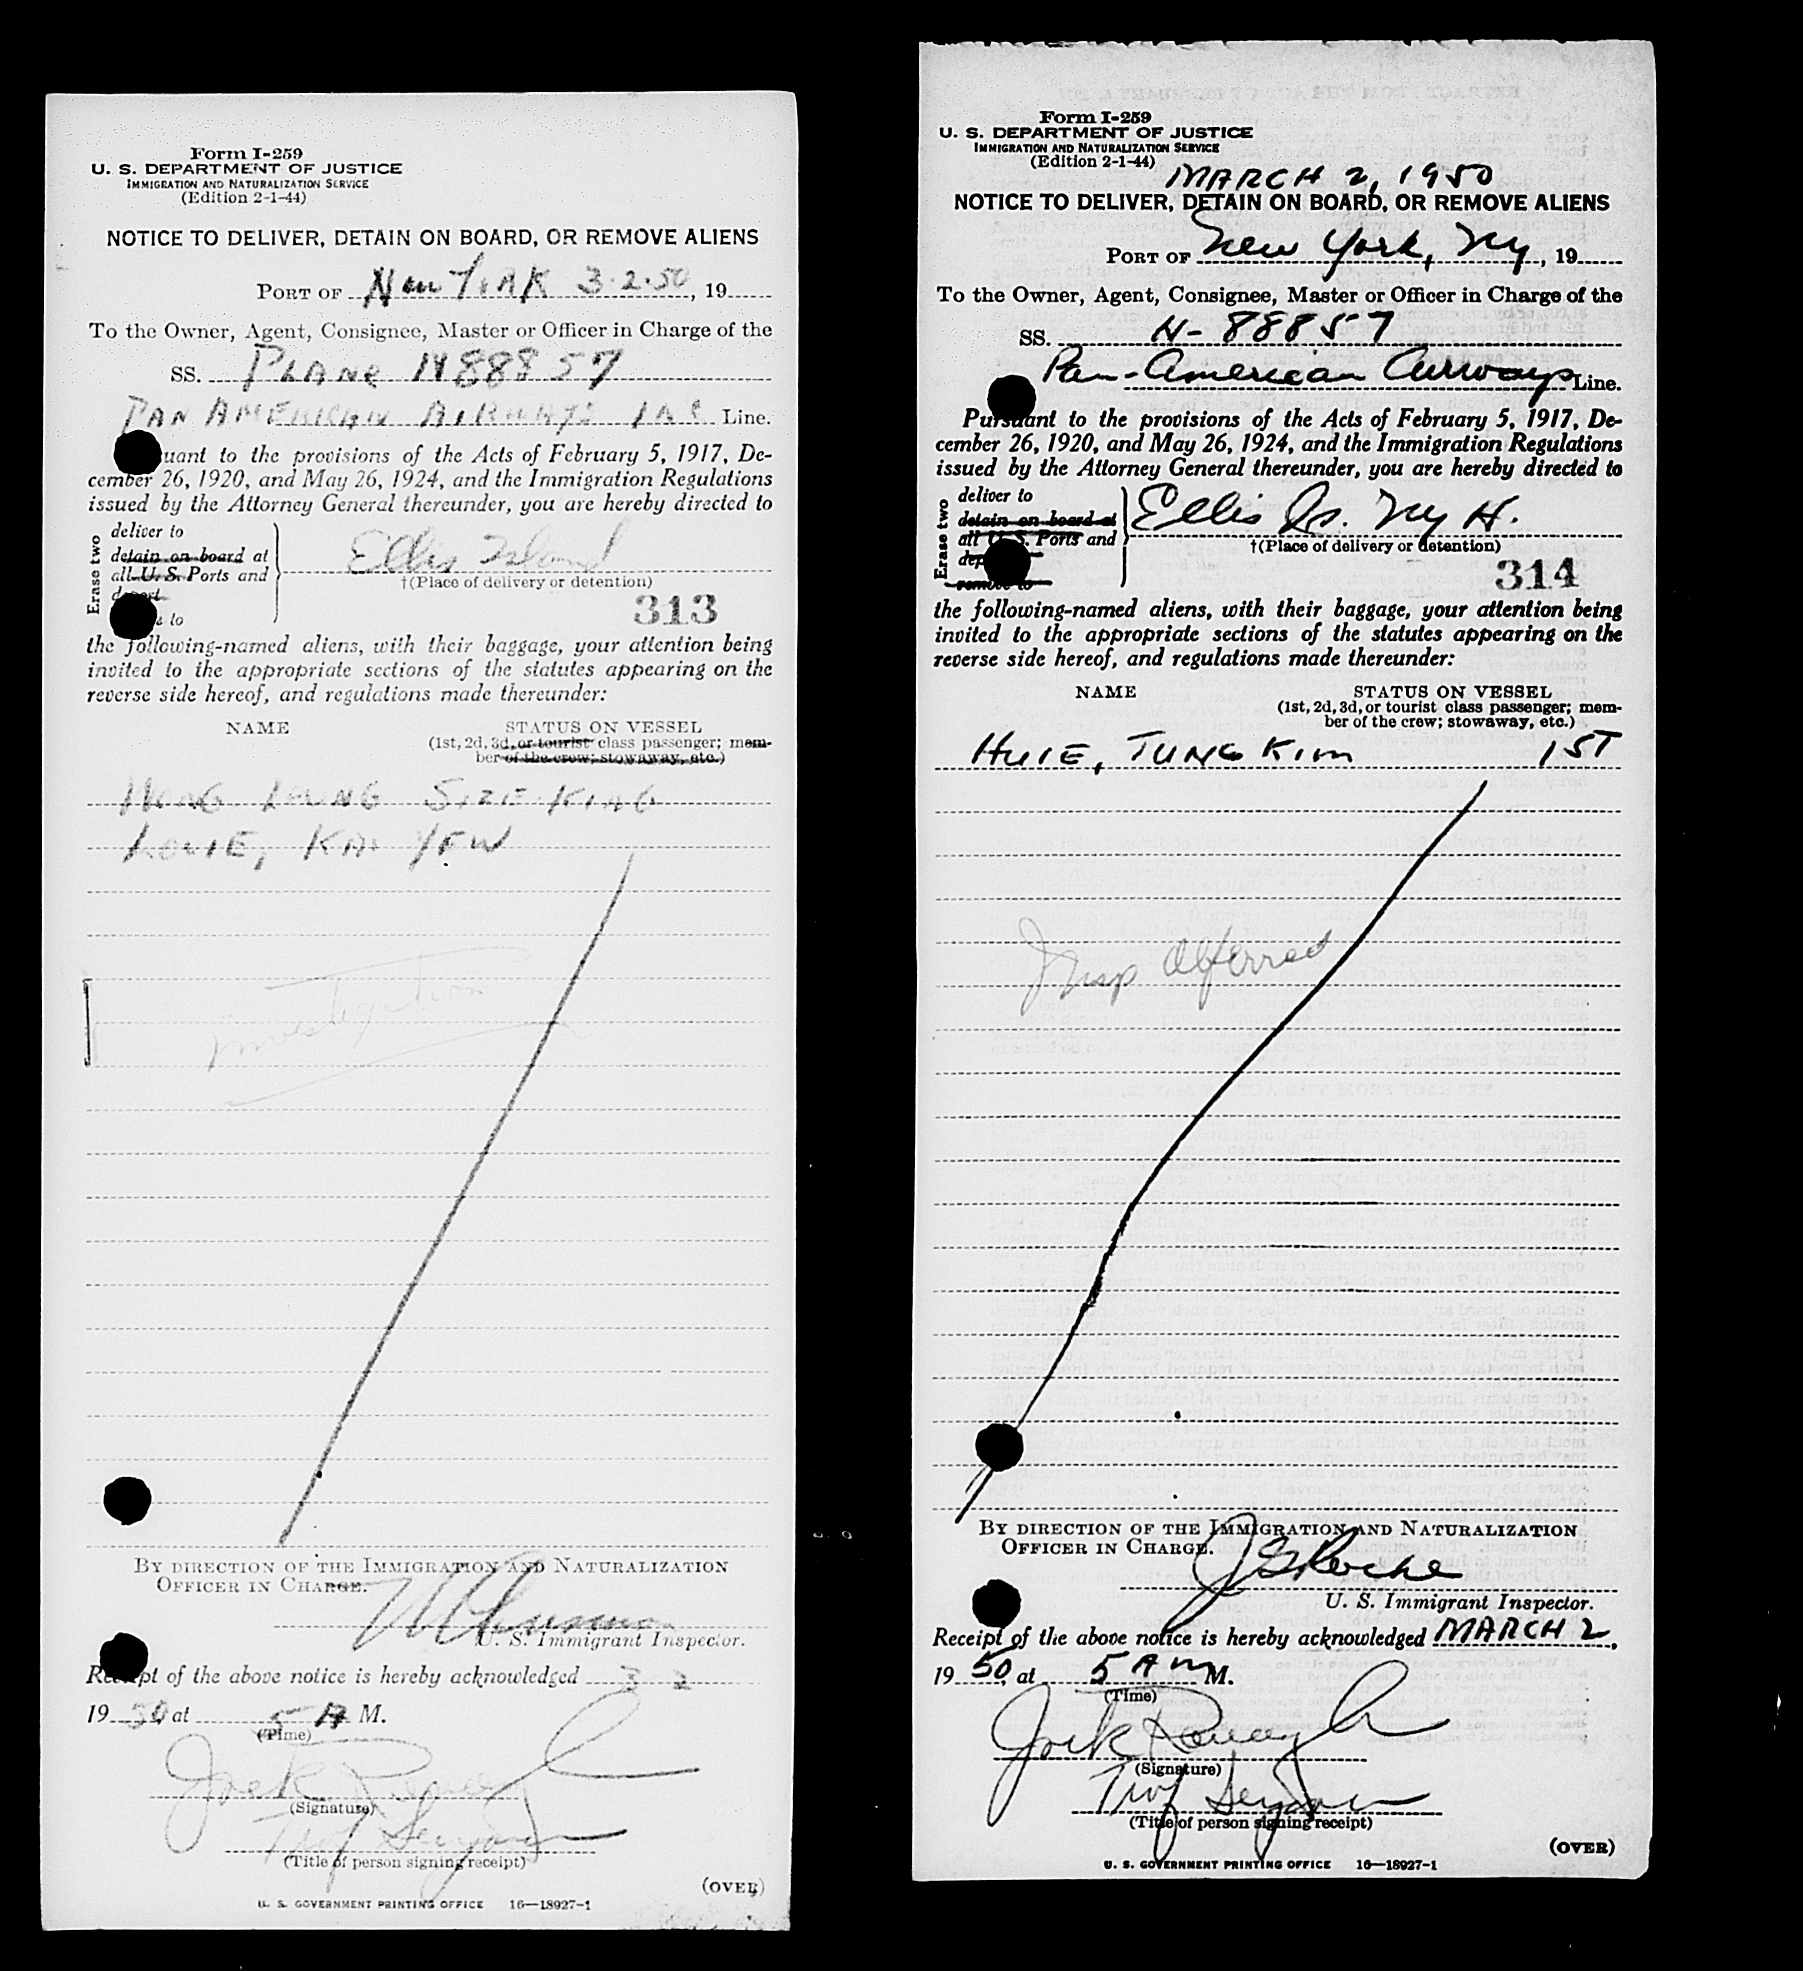 Form I-259
U. S. DEPARTMENT OF JUSTICE
IMMIGRATION AND NATURALIZATION SERVICE
(Edition 2-1-44)
NOTICE TO DELIVER, DETAIN ON BOARD, OR REMOVE ALIENS
PORT OF New York 3-2-50, 19
To the Owner, Agent, Consignee, Master or Officer in Charge of the
SS. PLANE N88857
PAN AMERICAN AIRWAYS INC Line.
uant to the provisions of the Acts of February 5, 1917, De-
cember 26, 1920, and May 26, 1924, and the Immigration Regulations
issued by the Attorney General thereunder, you are hereby directed to
Erase two
deliver to
detain on board at
all U. S. Ports and
deport
to
Ellis Island
†(Place of delivery or detention)
313
the following-named aliens, with their baggage, your attention being
invited to the appropriate sections of the statutes appearing on the
reverse side hereof, and regulations made thereunder:
NAME
STATUS ON VESSEL
(1st, 2d, 3d, or tourist class passenger; mem-
ber of the crew; stowaway, etc.)
SIZE KING
LOUIE, KAI YEW
Investigation
BY DIRECTION OF THE IMMIGRATION AND NATURALIZATION
OFFICER IN CHARGE.
U. S. Immigrant Inspector.
Receipt of the above notice is hereby acknowledged 3 2
19 50 at 5 A M.
(Time)
Jack
(Signature)
(Title of person signing receipt)
(OVER)
U. S. GOVERNMENT PRINTING OFFICE 16—18927-1
Form I-259
U. S. DEPARTMENT OF JUSTICE
IMMIGRATION AND NATURALIZATION SERVICE
(Edition 2-1-44)
MARCH 2, 1950
NOTICE TO DELIVER, DETAIN ON BOARD, OR REMOVE ALIENS
PORT OF New York, Ny, 19
To the Owner, Agent, Consignee, Master or Officer in Charge of the
SS. N-88857
Pan-American Airways Line.
Pursuant to the provisions of the Acts of February 5, 1917, De-
cember 26, 1920, and May 26, 1924, and the Immigration Regulations
issued by the Attorney General thereunder, you are hereby directed to
Erase two
deliver to
detain on board at
all U. S. Ports and
dep
remove to
Ellis Is. Ny H.
†(Place of delivery or detention)
314
the following-named aliens, with their baggage, your attention being
invited to the appropriate sections of the statutes appearing on the
reverse side hereof, and regulations made thereunder:
NAME
STATUS ON VESSEL
(1st, 2d, 3d, or tourist class passenger; mem-
ber of the crew; stowaway, etc.)
HUIE, TUNG KIM 1ST
Insp deferred
BY DIRECTION OF THE IMMIGRATION AND NATURALIZATION
OFFICER IN CHARGE.
J G Roche
U. S. Immigrant Inspector.
Receipt of the above notice is hereby acknowledged MARCH 2,
19 50, at 5 AM M.
(Time)
Jack
(Signature)
(Title of person signing receipt)
(OVER)
U. S. GOVERNMENT PRINTING OFFICE 16—18927-1